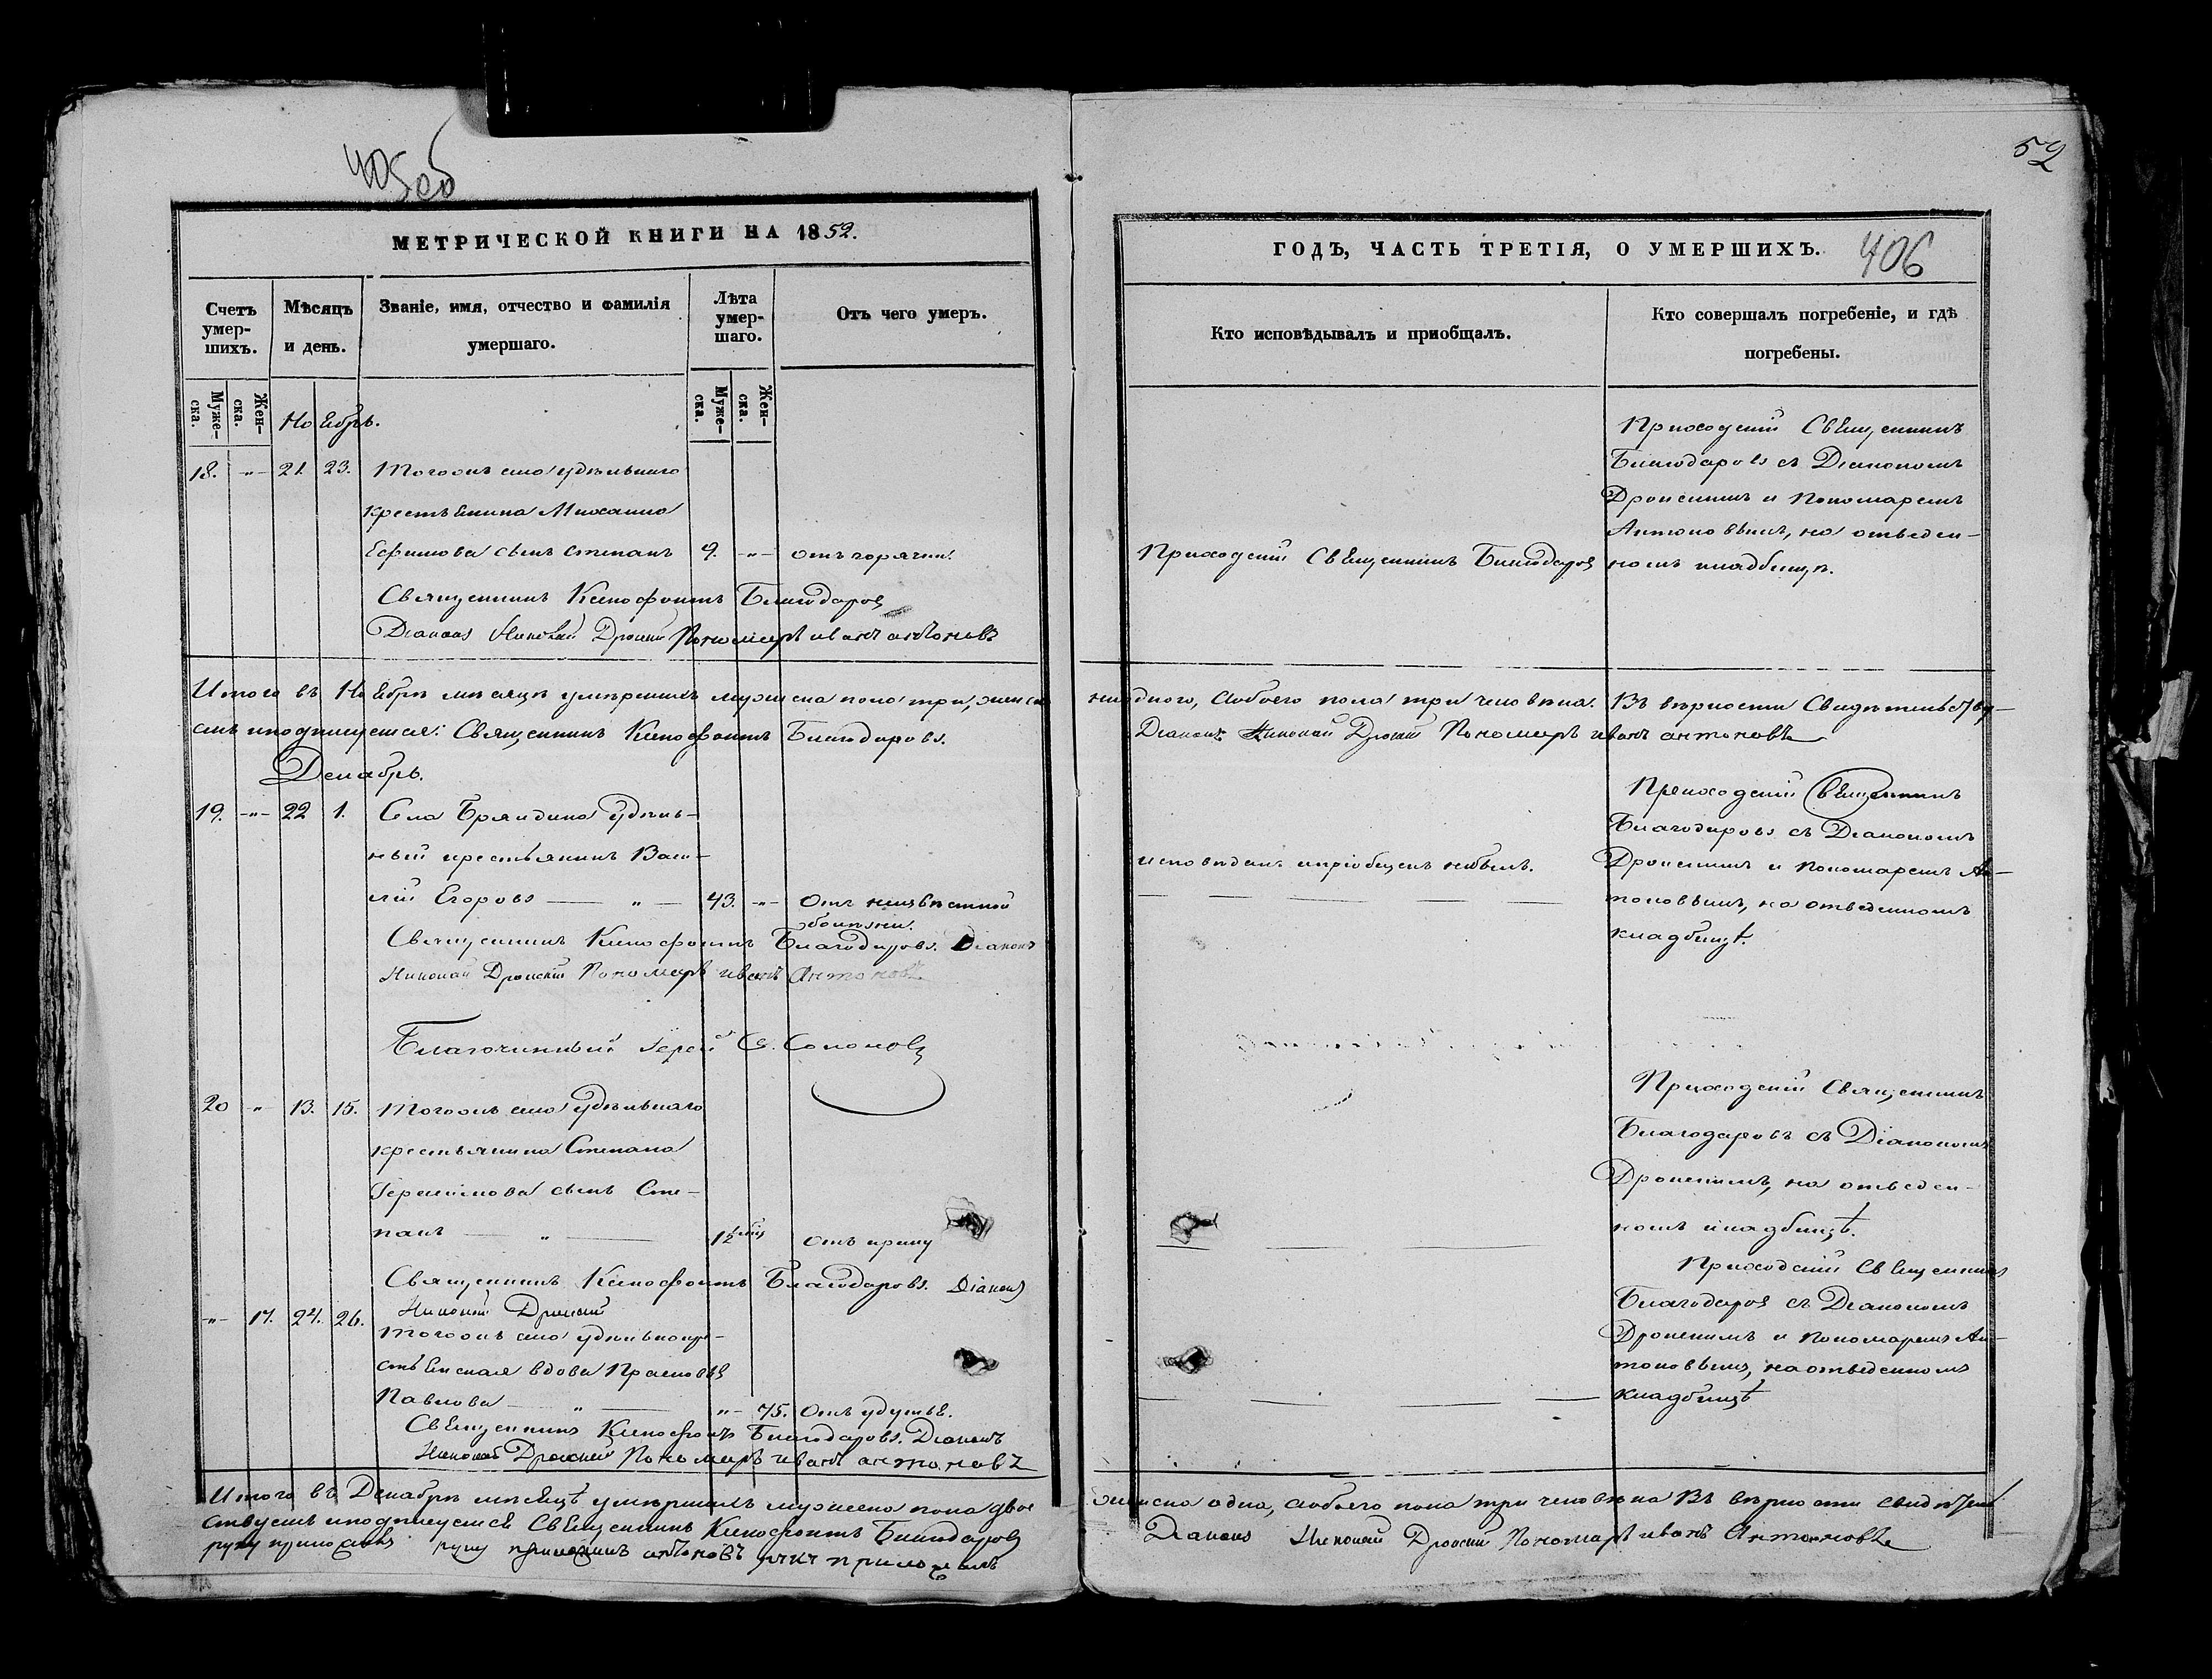 405 об
52
МЕТРИЧЕСКОЙ КНИГИ НА 1852.
Счетъ умер-шихъ.
Мѣсяцъ и день.
Званіе, имя, отчество и фамилія умершаго.
Лѣта умер-шаго.
Отъ чего умеръ.
Муже-ска.
Жен-ска.
Муже-ска.
Жен-ска.
Ноябрь.
18. -"- 21. 23. Тогожъ села удѣльнаго
крестьянина Михаила
Ефимова сынъ Степанъ 9. -"- отъ горячки.
Священникъ Ксенофонтъ Благодаровъ
Діаконъ Николай Дронскій Пономарь иванъ антоновъ
Итого въ Ноябрѣ мѣсяцѣ умершихъ мужеска пола три, женска
емъ и подписуемся: Священникъ Ксенофонтъ Благодаровъ.
Декабрь.
19. -"- 22 1. Села Бряндина удѣль-
ный крестьянинъ Васи-
лій Егоровъ — " — 43. -"- Отъ неизвѣстной
болѣзни.
Священникъ Ксенофонтъ Благодаровъ. Діаконъ
Николай Дронскій Пономарь иванъ Антоновъ
Благочинный Іерей С. Соколовъ
20 " 13. 15. Тогожъ села удѣльнаго
крестьянина Степана
Герасимова сынъ Сте-
панъ — " — 12 отъ крику
Священникъ Ксенофонтъ Благодаровъ. Діаконъ
Николай Дронскій
-"- 17. 24. 26. Тогожъ села удѣльнокре-
стьянская вдова Прасковья
Павлова — " — "- 75. Отъ удушья.
Священникъ Ксенофонтъ Благодаровъ. Діаконъ
Николай Дронскій Пономарь иванъ антоновъ
Итого въ Декабрѣ мѣсяцѣ умершихъ мужеска пола двое
ствуемъ и подписуемся Священникъ Ксенофонтъ Благодаровъ
руку приложилъ руку приложилъ антоновъ руку приложилъ
ГОДЪ, ЧАСТЬ ТРЕТІЯ, О УМЕРШИХЪ. 406
Кто исповѣдывалъ и приобщалъ.
Кто совершалъ погребеніе, и гдѣ погребены.
Приходскій Священникъ
Благодаровъ съ Діакономъ
Дронскимъ и Пономаремъ
Антоновымъ, на отведен-
Приходскій Священникъ Благодаровъ номъ кладбищѣ.
ниодного, обоего пола три человѣка. Въ вѣрности Свидѣтельству-
Діаконъ Николай Дронскій Пономарь иванъ антоновъ
Приходскій Священникъ
Благодаровъ съ Діакономъ
исповѣданъ и пріобщенъ небылъ. Дронскимъ и Пономаремъ Ан-
тоновымъ, на отведенномъ
кладбищѣ.
Приходскій Священникъ
Благодаровъ съ Діакономъ
Дронскимъ, на отведен-
номъ кладбищѣ.
Приходскій Священникъ
Благодаровъ съ Діакономъ
Дронскимъ и Пономаремъ Ан-
тоновымъ, на отведенномъ
кладбищѣ
женска одна, обоего пола три человѣка Въ вѣрности свидѣтель
Діаконъ Николай Дронскій Пономарь иванъ Антоновъ